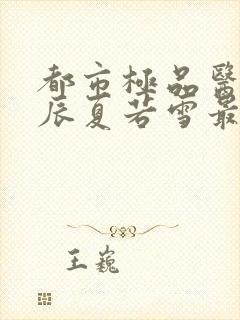 都市極品醫
辰夏若雪最
王巍